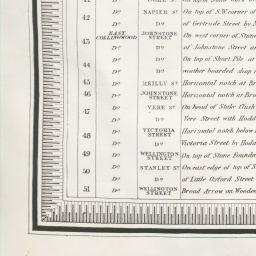 42 Do NAPIER St On top of S.W. corner of
Do Do of Gertrude Street by
43 EAST COLLINGWOOD JOHNSTONE STREET On west corner of Stone
Do Do of Johnstone Street
44 Do Do On top of Short Pile at
Do Do weather boarded shop
45 Do REILLY St Horizontal notch at
46 Do JOHNSTONE STREET Horizontal notch at
47 Do VERE St On head of Stake
Do Do Vere Street with
48 Do VICTORIA STREET Horizontal notch below
Do Do Victoria Street by
49 Do WELLINGTON STREET On top of Stone
50 Do STANLEY St On east edge of top of
Do Do of Little Oxford Street
51 Do WELLINGTON STREET Broad Arrow on Wooden